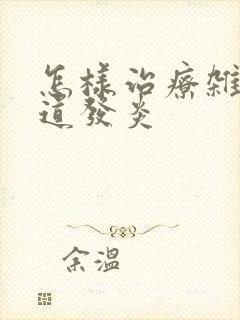 怎樣治療雜
道發炎
余溫